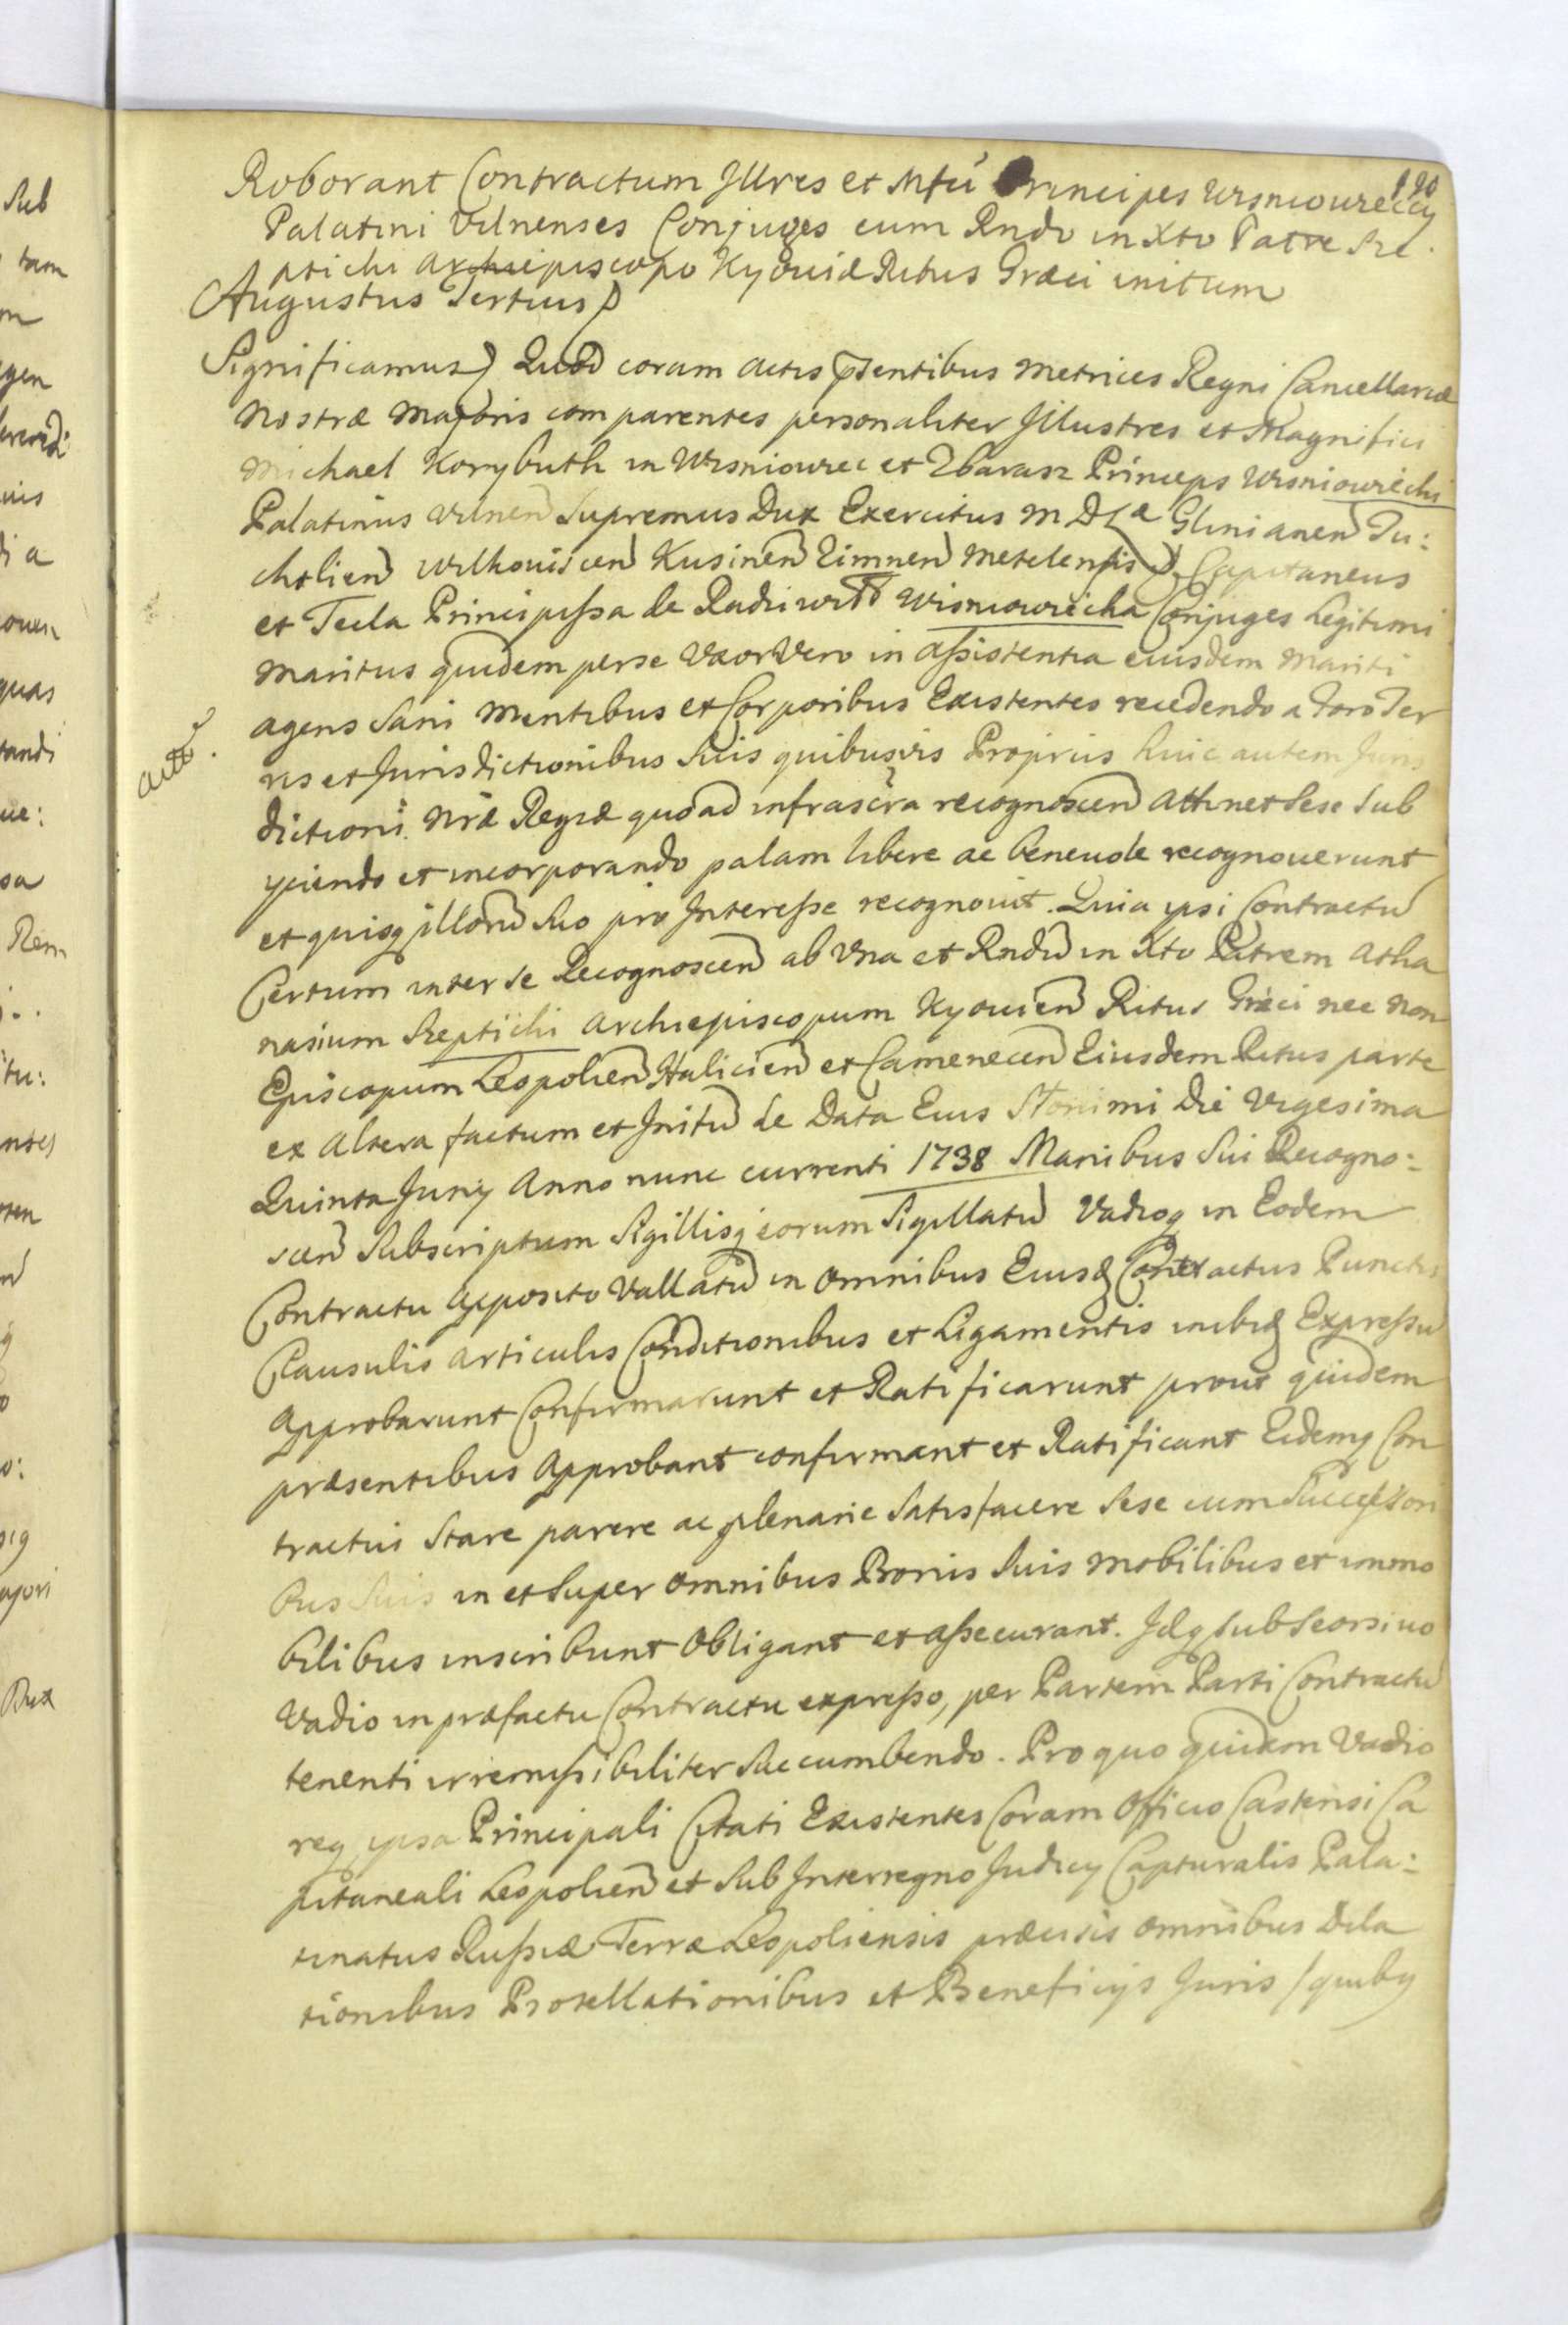 190
Roborant Contractum Illres et Mfci Principes Wisniowieccy
Palatini Vilnenses Conjuges cum Rndo in Xto Patre Sze
ptichi Archiepiscopo Kyoviæ Ritus Græci initum
Augustus Tertius
Significamus Quod coram actis pntibus Metrices Regni Cancellariæ
Nostræ Majoris comparentes personaliter Illustres et Magnifici
Michael Korybuth in Wisniowiec et Zbarasz Princeps Wisniowiecki
Palatinus Vilnen Supremus Dux Exercitus M D L Glinianen Tu:
cholien Wilkoviscen Kusinen Zimnen Metelensis Capitaneus
et Tecla Principissa de Radziwill Wisniowiecka Conjuges Legitimi
Maritus quidem per se Uxor Vero in assistentia eiusdem Mariti
agens Sani Mentibus et Corporibus Existentes recedendo a Foro Ter
ris et Jurisdictionibus Suis quibusvis Propriis huic autem Juris
dictioni Nræ Regiæ quoad infrascra recognoscen attinet Sese Sub
yciendo et incorporando palam libere ac benevole recognoverunt
et quisq illoru Suo pro Interesse recognovit. Quia ipsi Contractu
Certum inter Se Recognoscen ab Una et Rndu in Xto Patrem Atha
nasium Szeptichi Archiepiscopum Kyovien Ritus Græci nec non
Episcopum Leopolien Halicien et Camenecen Eiusdem Ritus parte
ex Altera factum et Initu de Data Eius Slonimi Die Vigesima
Quinta Juny Anno nunc currenti 1738 Manibus Sui Recogno:
scen Subscriptum Sigillisq eorum Sigillatu Vadioq in Eodem
Contractu Apposito Vallatu in Omnibus Eiusd Contractus Punctis
Clausulis Articulis Conditionibus et Ligamentis inibiq Expressu
Approbarunt Confirmarunt et Ratificarunt prout quidem
præsentibus Approbant confirmant et Ratificant Eidemq Con
tractui Stare parere ac plenarie Satisfacere Sese cum Successori
bus Suis in et Super Omnibus Bonis Suis Mobilibus et immo
bilibus inscribunt Obligant et assecurant. Idq sub Seorsivo
Vadio in præfactu Contractu expresso, per Partem Parti Contractu
tenenti irremissibiliter Succumbendo. Pro quo quidem Vadio
req ipsa Principali Citati Existentes Coram Officio Castrensi Ca
pitaneali Leopolien et Sub Interregno Judicy Capturalis Pala:
tinatus Russiæ Terræ Leopoliensis præcisis Omnibus Dila
tionibus Protellationibus et Beneficijs Juris / quibq